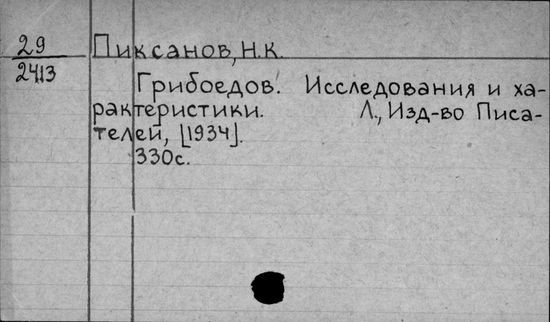 29
2413
Пиксанов, Н.К.
Грибоедов. Исследования и ха-
рактеристики. Л., Изд-во Писа-
телей, [1934].
330с.